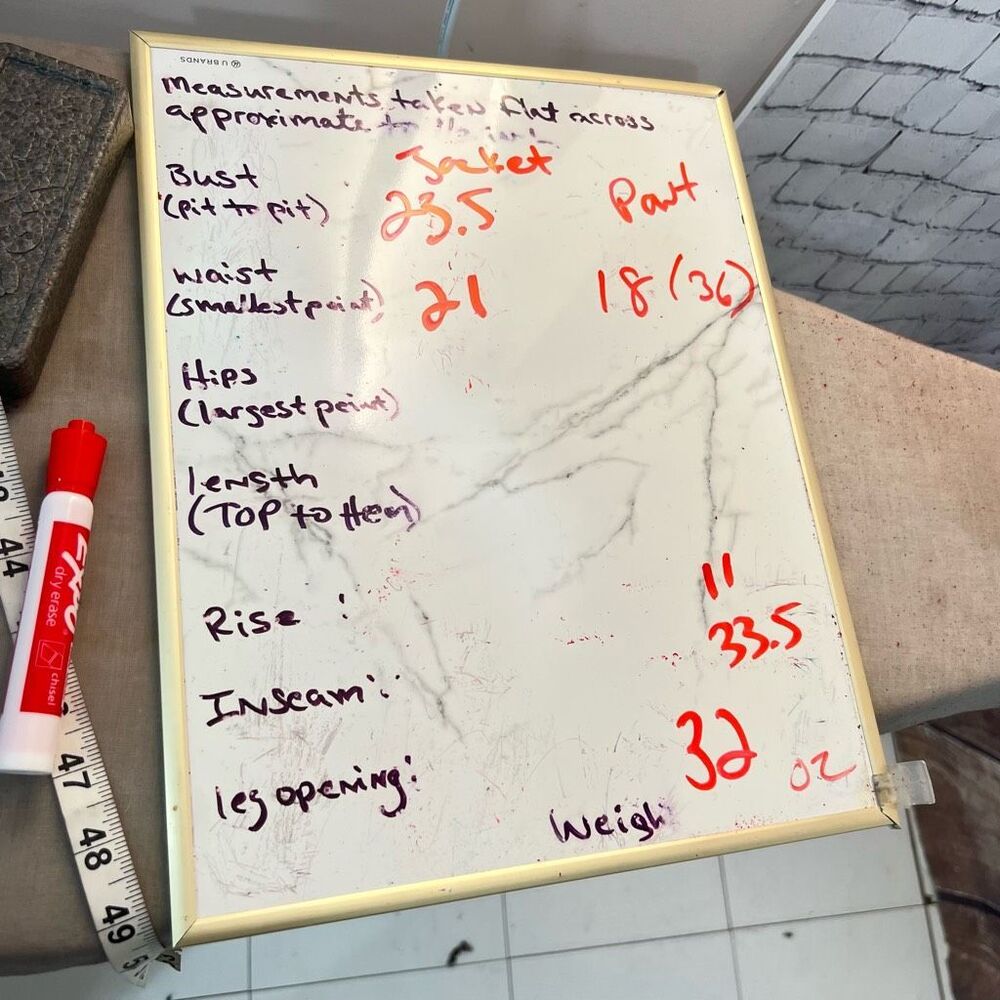 U BRANDS
Measurements taken flat across
approximate to the inch
Jacket
Bust
(pit to pit) 23.5 Pant
waist
(smallest point) 21 18 (36)
Hips
(largest point)
length
(TOP to Hem)
Rise : 11
33.5
Inseam:
32 oz
leg opening:
Weigh
EXPO
dry erase
chisel
44
47
48
49